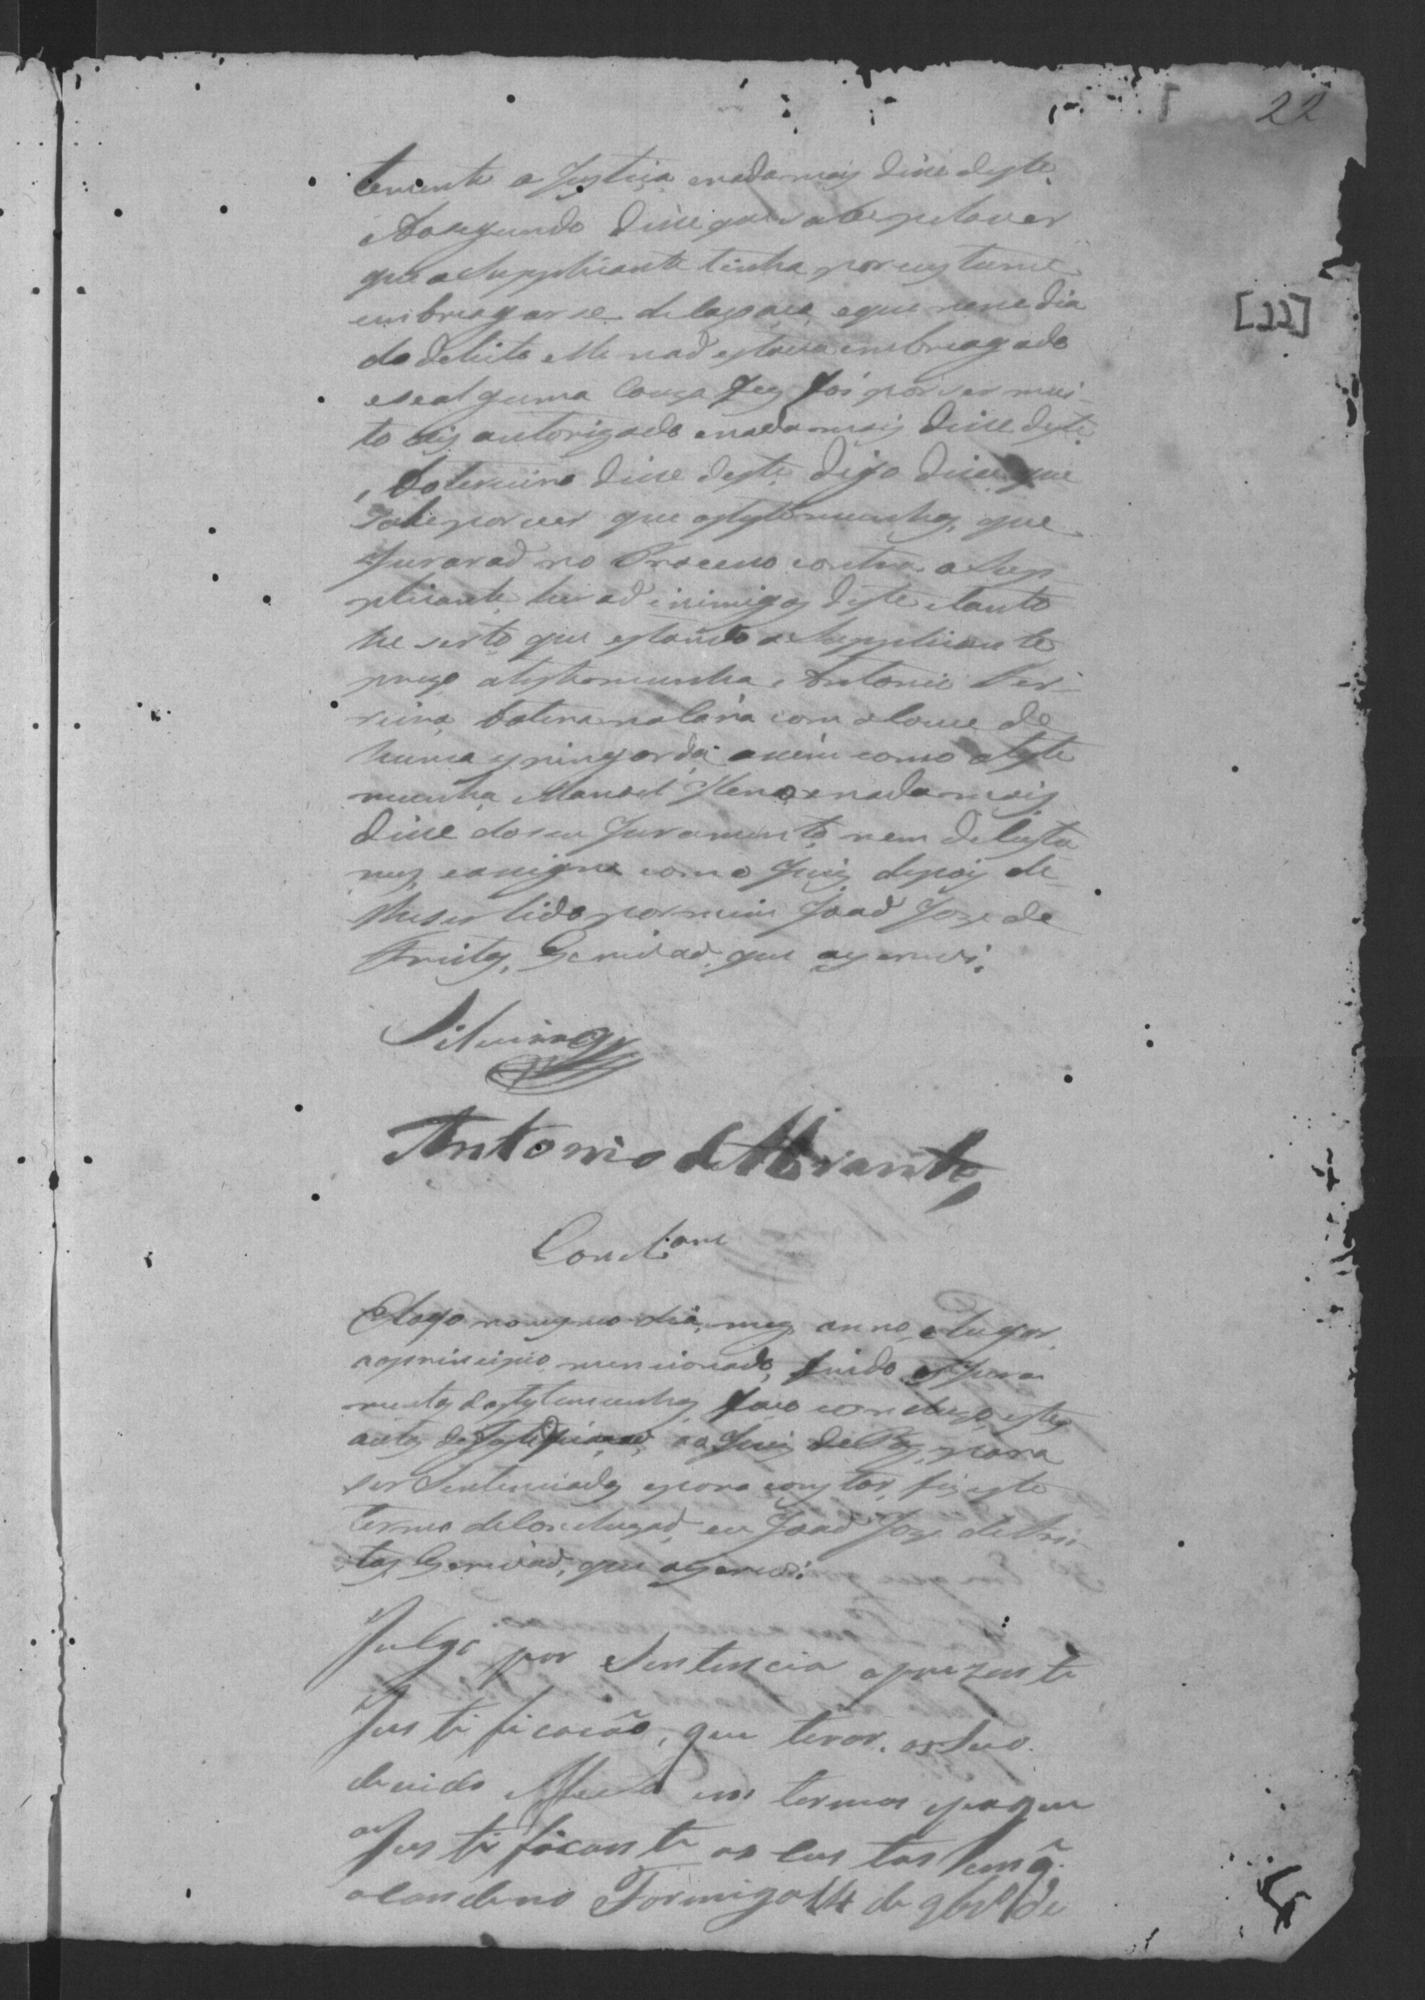 22
[22]
temente a Justiça enadamais disse deste.
Aosegundo disse que sabe pelo ver
que o Supplicante tinha por custume
embreagarse de caxaça eque nesse dia
do delicto elle nad estava embreagado
ese alguma Couza fez foi por ser mui-
to dis autorizado enadamais disse deste
Ao terceiro disse deste digo disse que
Sabe por ver que as testemunhas, que
Jurarad no Processo contra o Sup
plicante herad inimigos deste etanto
he serto que estando o Supplicante
prezo atestemunha Antonio Fer-
reira com o couce de
huma espingarda assim como a teste
munha Manoel enadamais
disse doseu Juramento nem do Custu
mes, eassigna com o Juiz depois de
lhe ser lido por mim Joad Joze de
Freitas, Escrivad que escrevi.
Silveira
Antonio de
Concl.am
Elogo nomesmo dia, mes, anno, elugar
aoprincipio mencionado, findo os Jura
mentos dastestemunhas faço concluzo estes
autos de Justificacad ao Juiz de Paz, para
ser Sentenciados epara constar fiz este
termo de Concluzad, eu Joad Joze de Frei-
tas Escrivad, que escrevi.
Julgo por Sentencia aprezente
Justificacão, que terá o Seo
devido Effeito em termos epague
o Justificante as Custas em q.
o condeno Formiga 14 de 9br.o de